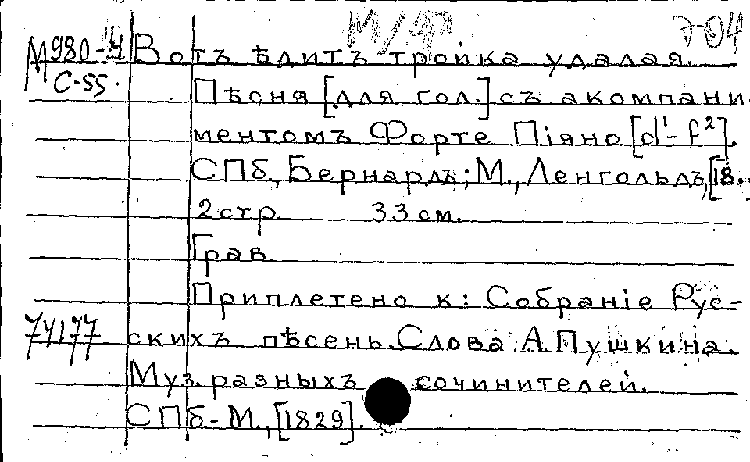 М/Ф Э-04
М980-4 Вотъ ѣдитъ тройка удалая.
С-55. Пѣсня [для гол.] съ акомпани-
ментомъ Форте Пiяно [d¹-f²].
СПб., Бернардъ; М., Ленгольдъ, [18..
2 стр. 33 см.
Грав.
Приплетено к: Собранiе Рус-
74177 скихъ пѣсень. Слова А. Пушкина.
Муз. разныхъ сочинителей.
СПб.-М., [1829].